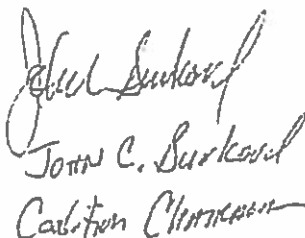 John Burkard
John C. Burkard
Coalition Chairman